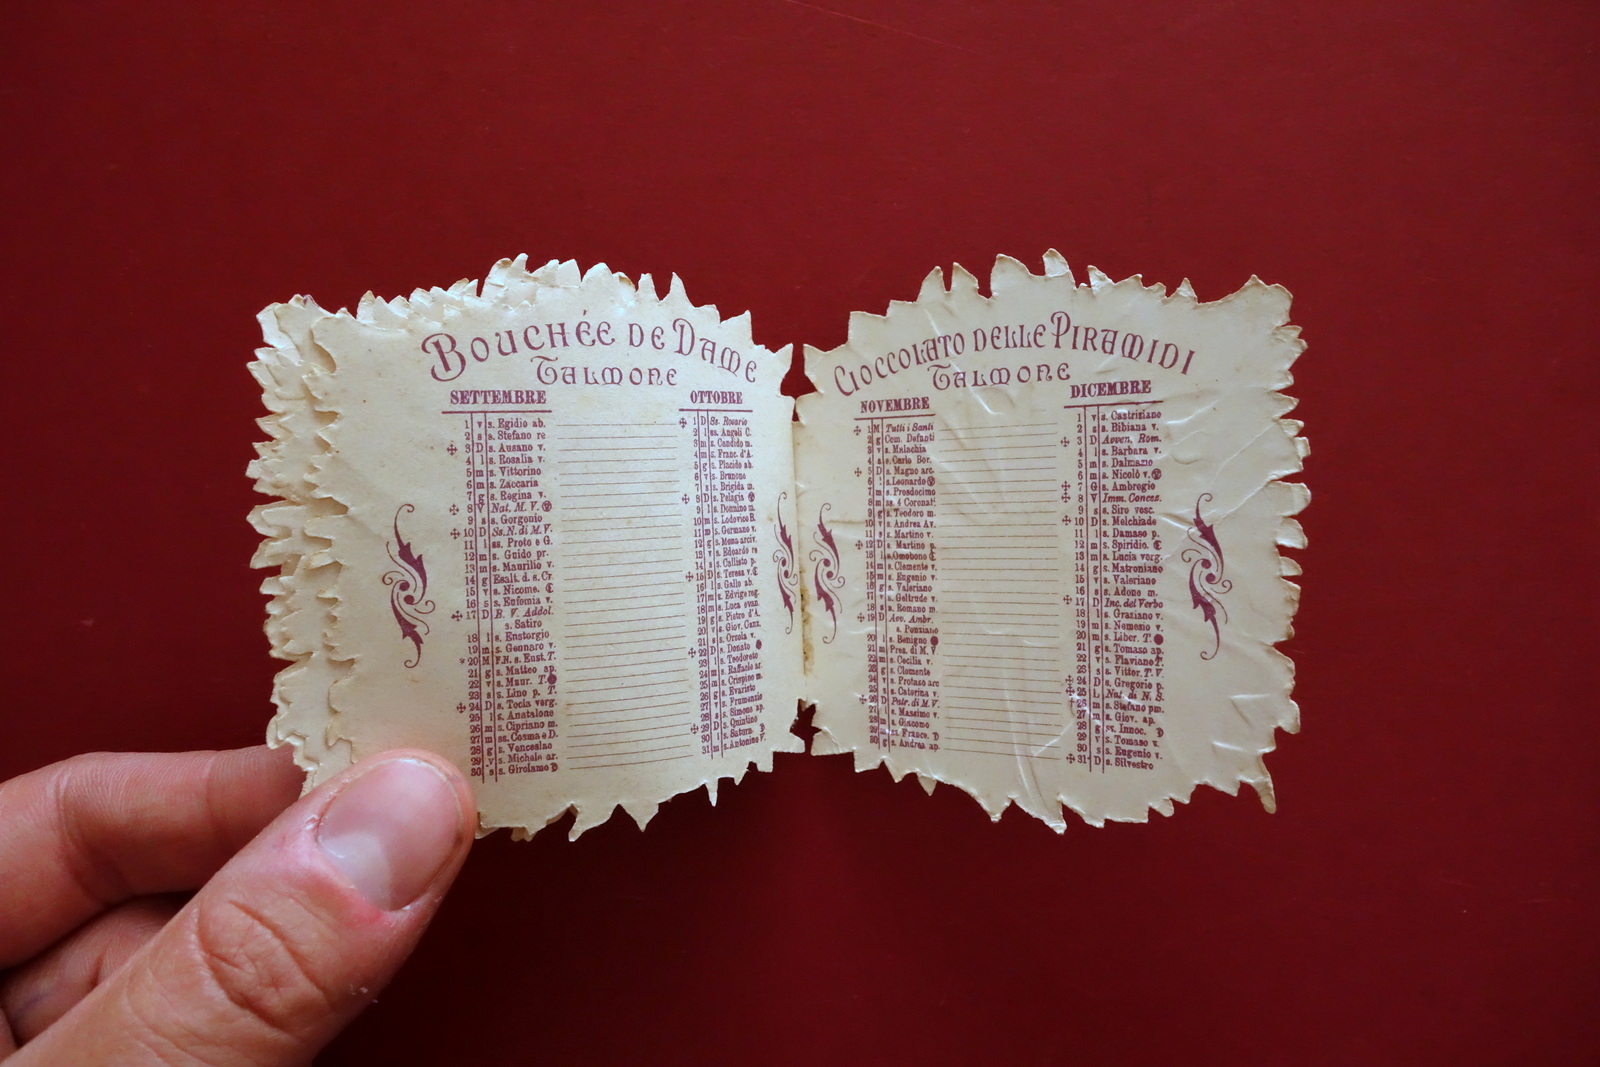 BOUCHÉE DE DAME
TALMONE
SETTEMBRE
1 v s. Egidio ab.
2 s s. Stefano re
✠ 3 D s. Ausano v.
4 l s. Rosalia v.
5 m s. Vittorino
6 m s. Zaccaria
7 g s. Regina v.
✠ 8 V Nat. M. V.
9 s s. Gorgonio
✠ 10 D Ss. N. di M. V.
11 l ss. Proto e G.
12 m s. Guido pr.
13 m s. Maurilio v.
14 g Esalt. d. s. Cr.
15 v s. Nicome. ☾
16 s s. Eufemia v.
✠ 17 D B. V. Addol.
s. Satiro
18 l s. Eustorgio
19 m s. Gennaro v.
* 20 M F.N. s. Eust. T.
21 g s. Matteo ap.
22 v s. Maur. T. ●
23 s s. Lino p. T.
✠ 24 D s. Tecla verg.
25 l s. Anatalone
26 m s. Cipriano m.
27 m ss. Cosma e D.
28 g s. Venceslao
29 v s. Michele ar.
30 s s. Girolamo
OTTOBRE
✠ 1 D Ss. Rosario
2 l ss. Angeli C.
3 m s. Candido m.
4 m s. Franc. d'A.
5 g s. Placido ab.
6 v s. Brunone
7 s s. Brigida m.
✠ 8 D s. Pelagia
9 l s. Donnino m.
10 m s. Lodovico B.
11 m s. Germano v.
12 g s. Mona arciv.
13 v s. Edoardo re
14 s s. Callisto p.
✠ 15 D s. Teresa v. ☾
16 l s. Gallo ab.
17 m s. Edvige reg.
18 m s. Luca evan.
19 g s. Pietro d'A.
20 v s. Giov. Canz.
21 s s. Orsola v.
✠ 22 D s. Donato ●
23 l s. Teodoreto
24 m s. Raffaele ar.
25 m s. Crispino m.
26 g s. Evaristo
27 v s. Frumenzio
28 s s. Simone ap.
✠ 29 D s. Quintino
30 l s. Saturn.
31 m s. Antonino V.
CIOCCOLATO DELLE PIRAMIDI
TALMONE
NOVEMBRE
✠ 1 M Tutti i Santi
2 g Com. Defunti
3 v s. Malachia
4 s s. Carlo Bor.
✠ 5 D s. Magno arc.
6 l s. Leonardo
7 m s. Prosdocimo
8 m ss. 4 Coronati
9 g s. Teodoro m.
10 v s. Andrea Av.
11 s s. Martino v.
✠ 12 D s. Martino p.
13 l s. Omobono ☾
14 m s. Clemente v.
15 m s. Eugenio v.
16 g s. Valeriano
17 v s. Geltrude v.
18 s s. Romano m.
✠ 19 D Avv. Ambr.
s. Ponziano
20 l s. Benigno ●
21 m Pres. di M. V.
22 m s. Cecilia v.
23 g s. Clemente
24 v s. Protaso arc
25 s s. Caterina v.
✠ 26 D Patr. di M. V.
27 l s. Massimo v.
28 m s. Giacomo
29 m s. Franc.
30 g s. Andrea ap.
DICEMBRE
1 v s. Castriziano
2 s s. Bibiana v.
✠ 3 D Avven. Rom.
4 l s. Barbara v.
5 m s. Dalmazio
6 m s. Nicolò v.
✠ 7 G s. Ambrogio
✠ 8 V Imm. Concez.
9 s s. Siro vesc.
✠ 10 D s. Melchiade
11 l s. Damaso p.
12 m s. Spiridio. ☾
13 m s. Lucia verg.
14 g s. Matroniano
15 v s. Valeriano
16 s s. Adone m.
✠ 17 D Inc. del Verbo
18 l s. Graziano v.
19 m s. Nemesio v.
20 m s. Liber. T. ●
21 g s. Tomaso ap.
22 v s. Flaviano T.
23 s s. Vitter. T. V.
✠ 24 D s. Gregorio p.
✠ 25 L Nat. di N. S.
✠ 26 m s. Stefano pm.
27 m s. Giov. ap.
28 g ss. Innoc.
29 v s. Tomaso v.
30 s s. Eugenio v.
✠ 31 D s. Silvestro